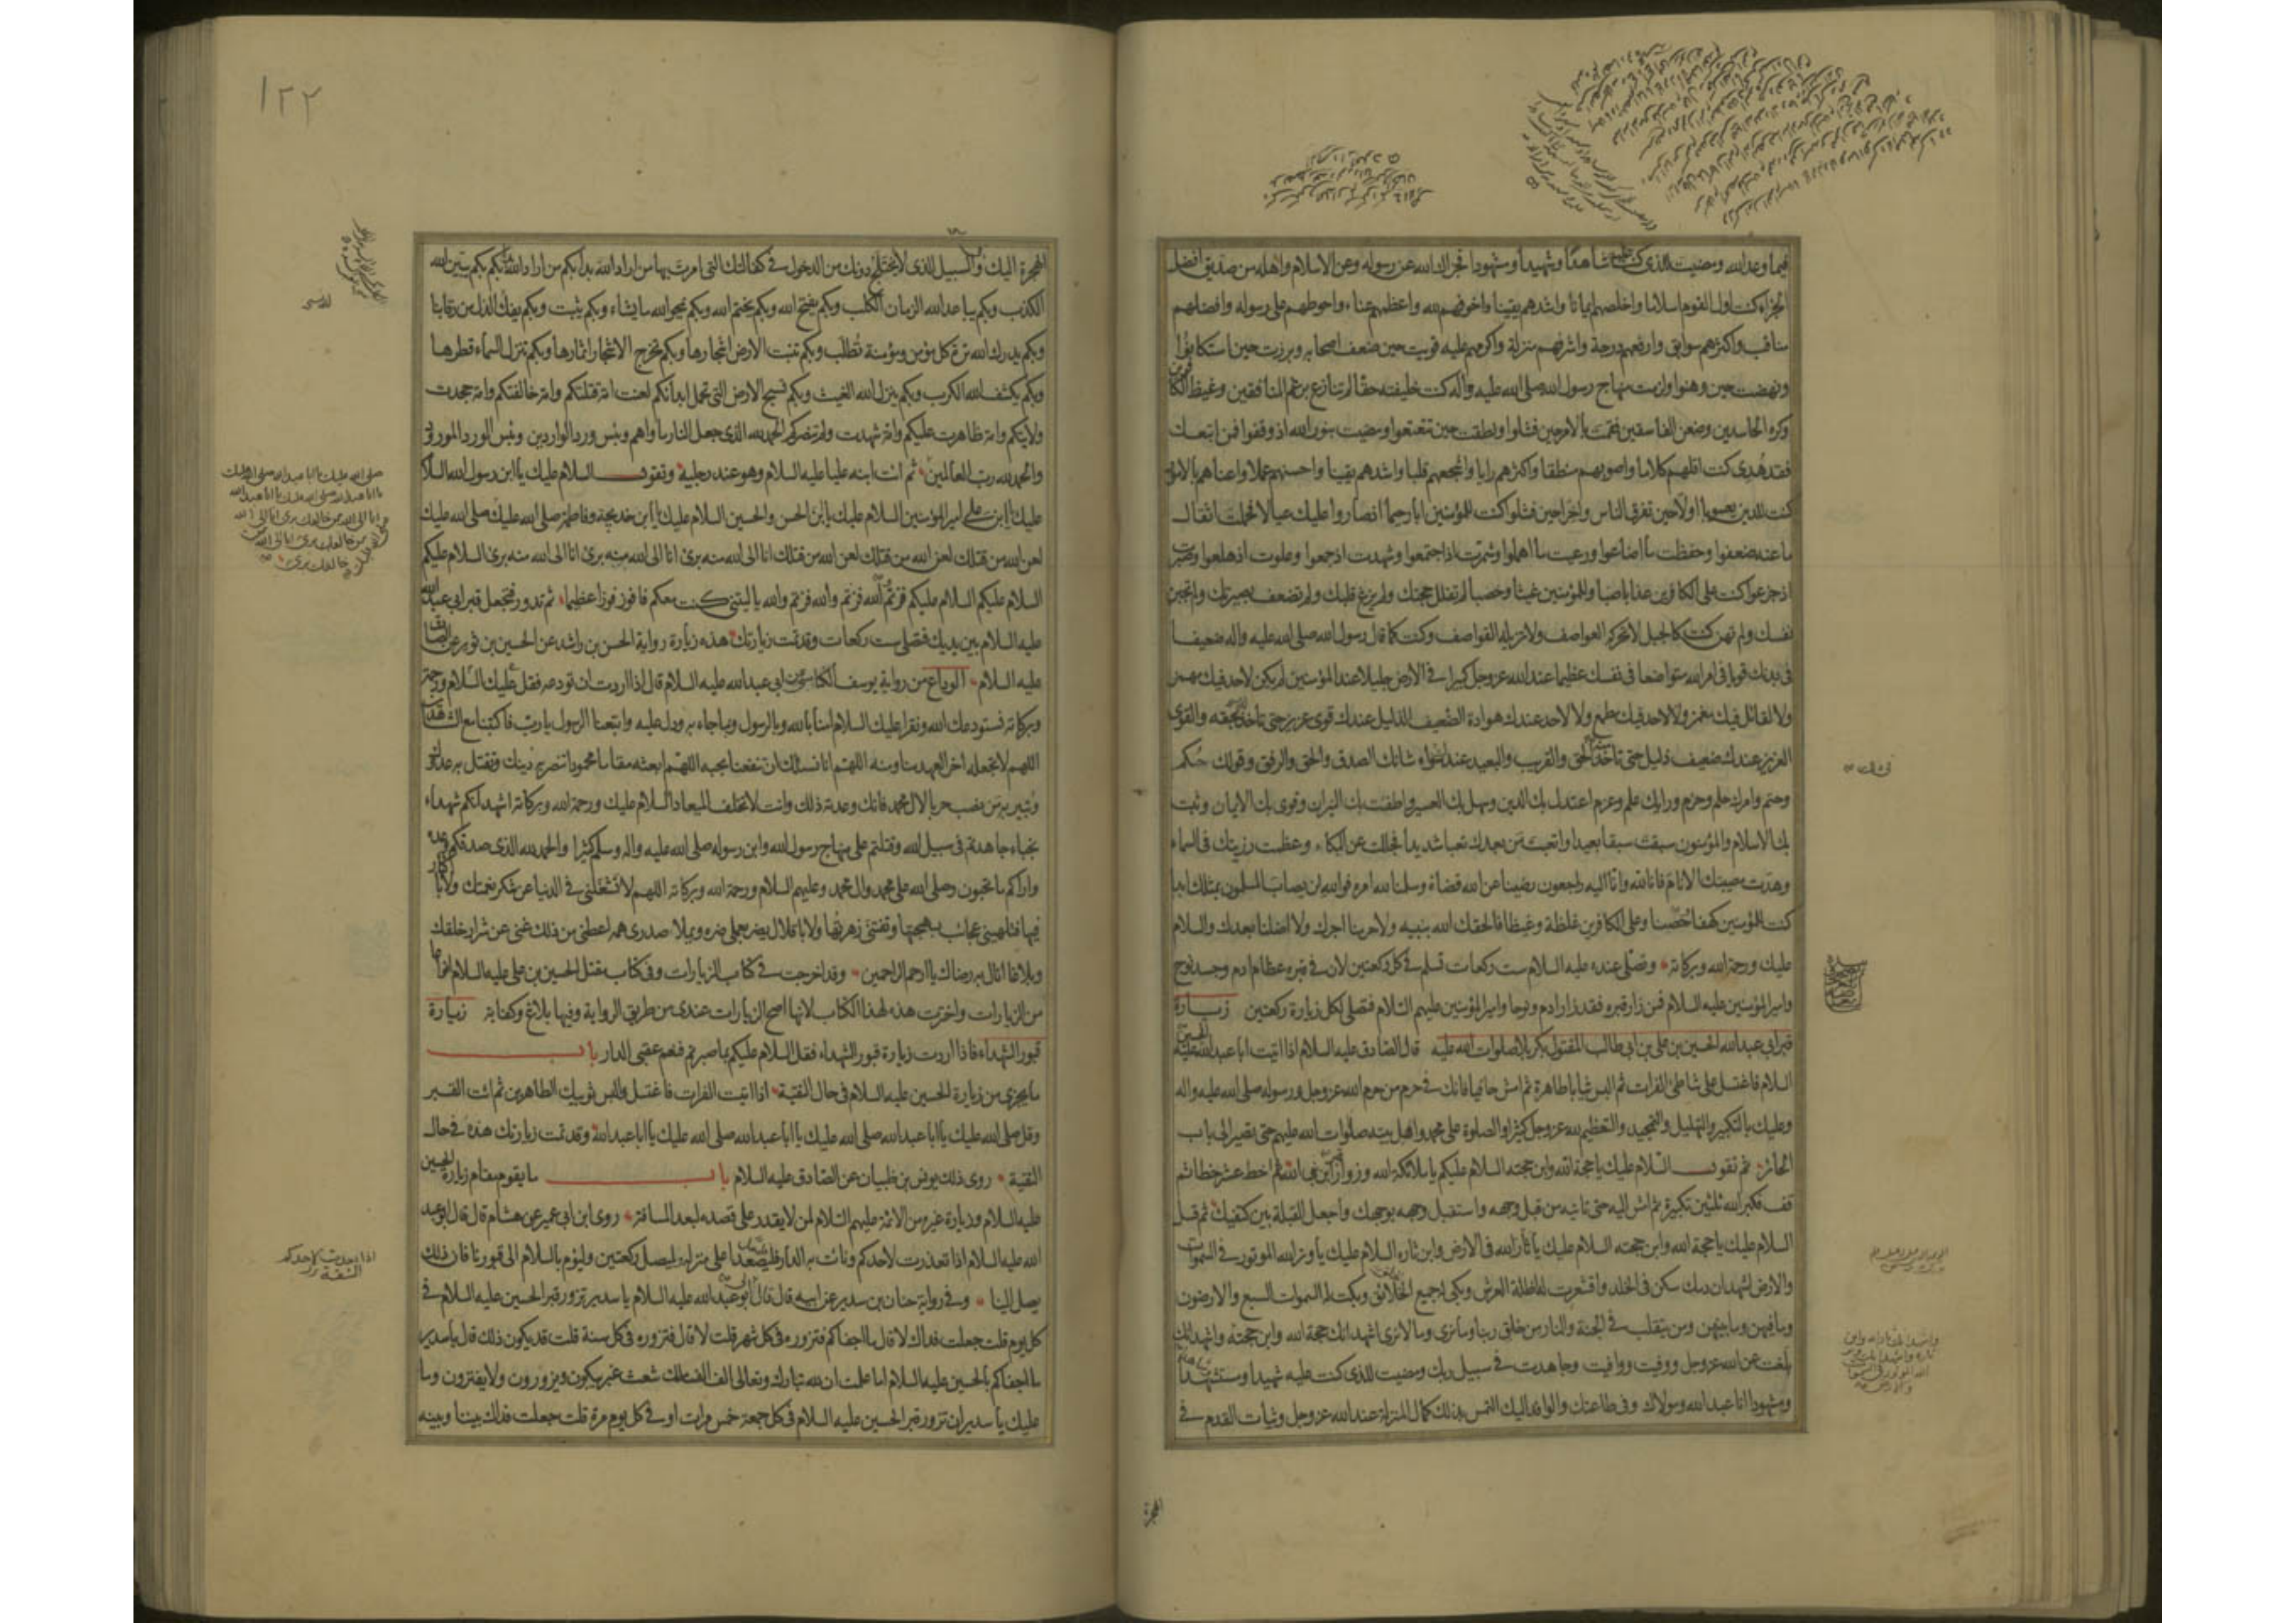 فيما وعد الله ومضيت للذي كنت عليه شاهدا وشهيدا ومشهودا فجزاك الله عن رسوله وعن الاسلام واهله من صديق افضل
الجزاء كنت اول القوم اسلاما واخلصهم ايمانا واشدهم يقينا واخوفهم لله واعظمهم عناء واحوطهم على رسوله وافضلهم
مناقب واكثرهم سوابق وارفعهم درجة واشرفهم منزلة واكرمهم عليه قويت حين ضعف اصحابه وبرزت حين استكانوا
ونهضت حين وهنوا ولزمت منهاج رسول الله صلى الله عليه وآله كنت خليفته حقا لم تنازع برغم المنافقين وغيظ الكافرين
وكره الحاسدين وضغن الفاسقين فقمت بالامر حين فشلوا ونطقت حين تتعتعوا ومضيت بنور الله اذ وقفوا فمن اتبعك
فقد هدى كنت اقلهم كلاما واصوبهم منطقا واكثرهم رايا واشجعهم قلبا واشدهم يقينا واحسنهم عملا واعناهم بالامور
كنت للدين يعسوبا اولا حين تفرق الناس واخرا حين فشلوا كنت للمؤمنين ابا رحيما اذ صاروا عليك عيالا فحملت اثقال
ما عنه ضعفوا وحفظت ما اضاعوا ورعيت ما اهملوا وشمرت اذ اجتمعوا وشهدت اذ جمعوا وعلوت اذ هلعوا وصبرت
اذ جزعوا كنت على الكافرين عذابا صبا وللمؤمنين غيثا وخصبا لم تفلل حجتك ولم يزغ قلبك ولم تضعف بصيرتك ولم تجبن
نفسك ولم تهن كنت كالجبل لا تحركه العواصف ولا تزيله القواصف وكنت كما قال رسول الله صلى الله عليه واله ضعيفا
في بدنك قويا في امر الله متواضعا في نفسك عظيما عند الله عز وجل كبيرا في الارض جليلا عند المؤمنين لم يكن لاحد فيك مهمز
ولا لقائل فيك مغمز ولا لاحد فيك مطمع ولا لاحد عندك هوادة الضعيف الذليل عندك قوي عزيز حتى تاخذ بحقه والقوي
العزيز عندك ضعيف ذليل حتى تاخذ منه الحق والقريب والبعيد عندك سواء شانك الصدق والحق والرفق وقولك حكم
وحتم وامرك حلم وحزم ورايك علم وعزم اعتدل بك الدين وسهل بك العسير واطفئت بك النيران وقوي بك الايمان وثبت
بك الاسلام والمؤمنون سبقت سبقا بعيدا واتعبت من بعدك تعبا شديدا فجللت عن البكاء وعظمت رزيتك في السماء
وهدت مصيبتك الانام فانا لله وانا اليه راجعون رضينا عن الله قضاه وسلمنا لله امره فوالله لن يصاب المسلمون بمثلك ابدا
كنت للمؤمنين كهفا حصنا وعلى الكافرين غلظة وغيظا فالحقك الله بنبيه ولا حرمنا اجرك ولا اضلنا بعدك والسلام
عليك ورحمة الله وبركاته وتصلى عنده عليه السلام ست ركعات تسلم في كل ركعتين لان في قبره عظام ادم وجسد نوح
وامير المؤمنين عليه السلام فمن زار قبره فقد زار ادم ونوحا وامير المؤمنين عليهم السلام فتصلي لكل زيارة ركعتين زيارة
قبر ابي عبد الله الحسين بن علي بن ابي طالب المقتول بكربلا صلوات الله عليه قال الصادق عليه السلام اذا اتيت ابا عبد الله الحسين عليه
السلام فاغتسل على شاطئ الفرات ثم البس ثيابا طاهرة ثم امش حافيا فانك في حرم من حرم الله عز وجل ورسوله صلى الله عليه واله
وعليك بالتكبير والتهليل والتمجيد والتعظيم لله عز وجل كثيرا والصلوة على محمد واهل بيته صلوات الله عليهم حتى تصير الى باب
الحائر ثم تقول السلام عليك يا حجة الله وابن حجته السلام عليكم يا ملائكة الله وزوار قبر ابن نبي الله ثم اخط عشر خطا ثم
قف فكبر الله ثلثين تكبيرة ثم امش اليه حتى تاتيه من قبل وجهه واستقبل وجهه بوجهك واجعل القبلة بين كتفيك ثم قل
السلام عليك يا حجة الله وابن حجته السلام عليك يا ثار الله في الارض وابن ثاره السلام عليك يا وتر الله الموتور في السموات
والارض اشهد ان دمك سكن في الخلد واقشعرت له اظلة العرش وبكى له جميع الخلائق وبكت له السموات السبع والارضون
وما فيهن وما بينهن ومن يتقلب في الجنة والنار من خلق ربنا وما نرى وما لا نرى اشهد انك حجة الله وابن حجته واشهد انك
بلغت عن الله عز وجل ووفيت ووافيت وجاهدت في سبيل ربك ومضيت للذي كنت عليه شهيدا ومستشهدا
ومشهودا انا عبد الله ومولاك وفي طاعتك والوافد اليك التمس بذلك كمال المنزلة عند الله عز وجل وثبات القدم في
الهجرة
١٢٢
الهجرة اليك والسبيل الذي لا يختلج دونك من الدخول في كفالتك التي امرت بها من اراد الله بدأ بكم من اراد الله بدأ بكم بكم يبين الله
الكذب وبكم يباعد الله الزمان الكلب وبكم يفتح الله وبكم يختم الله وبكم يمحو الله ما يشاء وبكم يثبت وبكم يفك الذل من رقابنا
وبكم يدرك الله ترة كل مؤمن ومؤمنة تطلب وبكم تنبت الارض اشجارها وبكم تخرج الاشجار اثمارها وبكم تنزل السماء قطرها
وبكم يكشف الله الكرب وبكم ينزل الله الغيث وبكم تسيخ الارض التي تحمل ابدانكم لعنت امة قتلتكم وامة خالفتكم وامة جحدت
ولايتكم وامة ظاهرت عليكم وامة شهدت ولم تنصركم الحمد لله الذي جعل النار ماواهم وبئس ورد الواردين وبئس الورد المورود
والحمد لله رب العالمين ثم ائت ابنه عليا عليه السلام وهو عند رجليه وتقول السلام عليك يا ابن رسول الله السلام
عليك يا ابن علي امير المؤمنين السلام عليك يا ابن الحسن والحسين السلام عليك يا ابن خديجة وفاطمة صلى الله عليك صلى الله عليك
لعن الله من قتلك لعن الله من قتلك لعن الله من قتلك انا الى الله منه بريء انا الى الله منه بريء انا الى الله منه بريء السلام عليكم
السلام عليكم السلام عليكم فزتم والله فزتم والله فزتم والله يا ليتني كنت معكم فافوز فوزا عظيما ثم تدور فتجعل قبر ابي عبد الله
عليه السلام بين يديك فتصلي ست ركعات وقد تمت زيارتك هذه زيارة رواية الحسن بن راشد عن الحسين بن ثوير عن الصادق
عليه السلام الوداع من رواية يوسف الكناسي عن ابي عبد الله عليه السلام قال اذا اردت ان تودعه فقل عليك السلام ورحمة
وبركاته نستودعك الله ونقرا عليك السلام امنا بالله وبالرسول وبما جاء به ودل عليه واتبعنا الرسول يا رب فاكتبنا مع الشاهدين
اللهم لا تجعله اخر العهد منا ومنه اللهم انا نسئلك ان تنفعنا بحبه اللهم ابعثه مقاما محمودا تنصر به دينك وتقتل به عدوك
وتبير به من نصب حربا لال محمد فانك وعدته ذلك وانت لا تخلف الميعاد السلام عليك ورحمة الله وبركاته اشهد انكم شهداء
نجباء جاهدتم في سبيل الله وقتلتم على منهاج رسول الله وابن رسوله صلى الله عليه واله وسلم كثيرا والحمد لله الذي صدقكم وعده
واراكم ما تحبون وصلى الله على محمد وال محمد وعليهم السلام ورحمة الله وبركاته اللهم لا تشغلني في الدنيا عن شكر نعمتك ولا باكثار
فيها فتلهيني عجائب بهجتها وتفتنني زهرتها ولا باقلال يضر بعملي ضره ويملاء صدري همه اعطني من ذلك غنى عن شرار خلقك
وبلاغا انال به رضاك يا ارحم الراحمين وقد اخرجت في كتاب الزيارات وفي كتاب مقتل الحسين بن علي عليه السلام انواعا
من الزيارات واخترت هذه لهذا الكتاب لانها اصح الزيارات عندي من طريق الرواية وفيها بلاغ وكفاية زيارة
قبور الشهداء فاذا اردت زيارة قبور الشهداء فقل السلام عليكم بما صبرتم فنعم عقبى الدار باب
ما يجزي من زيارة الحسين عليه السلام في حال التقية اذا اتيت الفرات فاغتسل والبس ثوبيك الطاهرين ثم ائت القبر
وقل صلى الله عليك يا ابا عبد الله صلى الله عليك يا ابا عبد الله صلى الله عليك يا ابا عبد الله وقد تمت زيارتك هذه في حال
التقية روى ذلك يونس بن ظبيان عن الصادق عليه السلام باب ما يقوم مقام زيارة الحسين
عليه السلام وزيارة غيره من الائمة عليهم السلام لمن لا يقدر على قصده لبعد المسافة روى ابن ابي عمير عن هشام قال قال ابو عبد
الله عليه السلام اذا تعذرت لاحدكم ونات به الدار فليصعد اعلى منزله فليصل ركعتين وليؤم بالسلام الى قبورنا فان ذلك
يصل الينا وفي رواية حنان بن سدير عن ابيه قال قال لي ابو عبد الله عليه السلام يا سدير تزور قبر الحسين عليه السلام في
كل يوم قلت جعلت فداك لا قال ما اجفاكم فتزوره في كل شهر قلت لا قال فتزوره في كل سنة قلت قد يكون ذلك قال يا سدير
ما اجفاكم بالحسين عليه السلام اما علمت ان لله تبارك وتعالى الف الف ملك شعث غبر يبكون ويزورون ولا يفترون وما
عليك يا سدير ان تزور قبر الحسين عليه السلام في كل جمعة خمس مرات او في كل يوم مرة قلت جعلت فداك بيننا وبينه